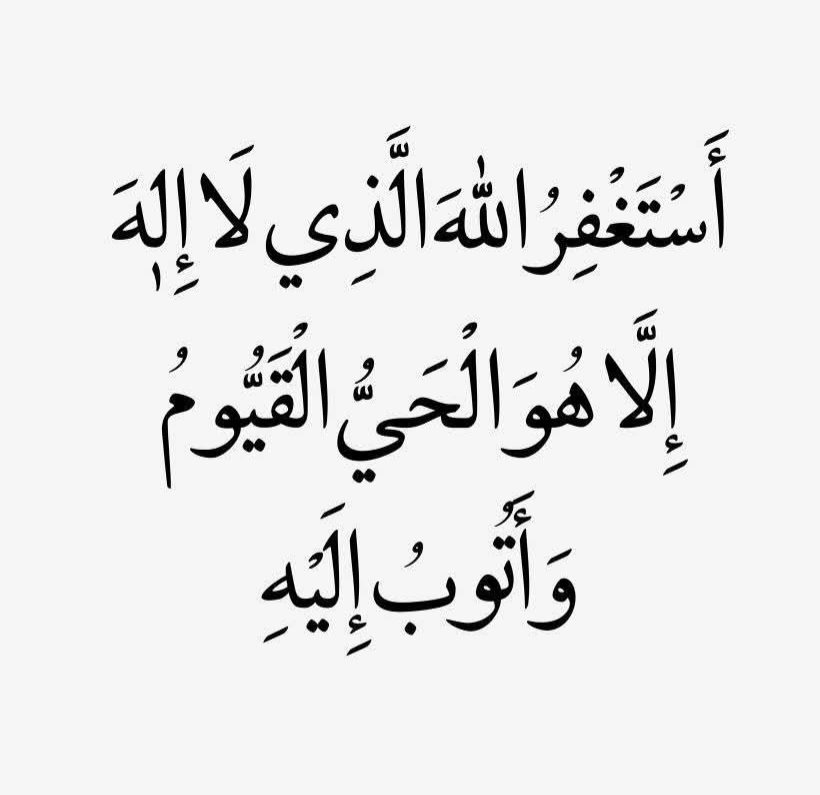 أَسْتَغْفِرُ اللهَ الَّذِي لَا إِلٰهَ
إِلَّا هُوَ الْحَيُّ الْقَيُّومُ
وَأَتُوبُ إِلَيْهِ